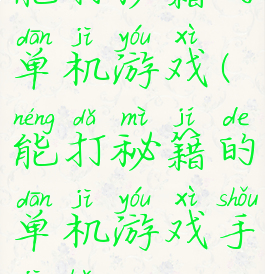 dān jī yóu xì
单机游戏(
néng dǎ mì jí de
能打秘籍的
dān jī yóu xì shǒu
单机游戏手